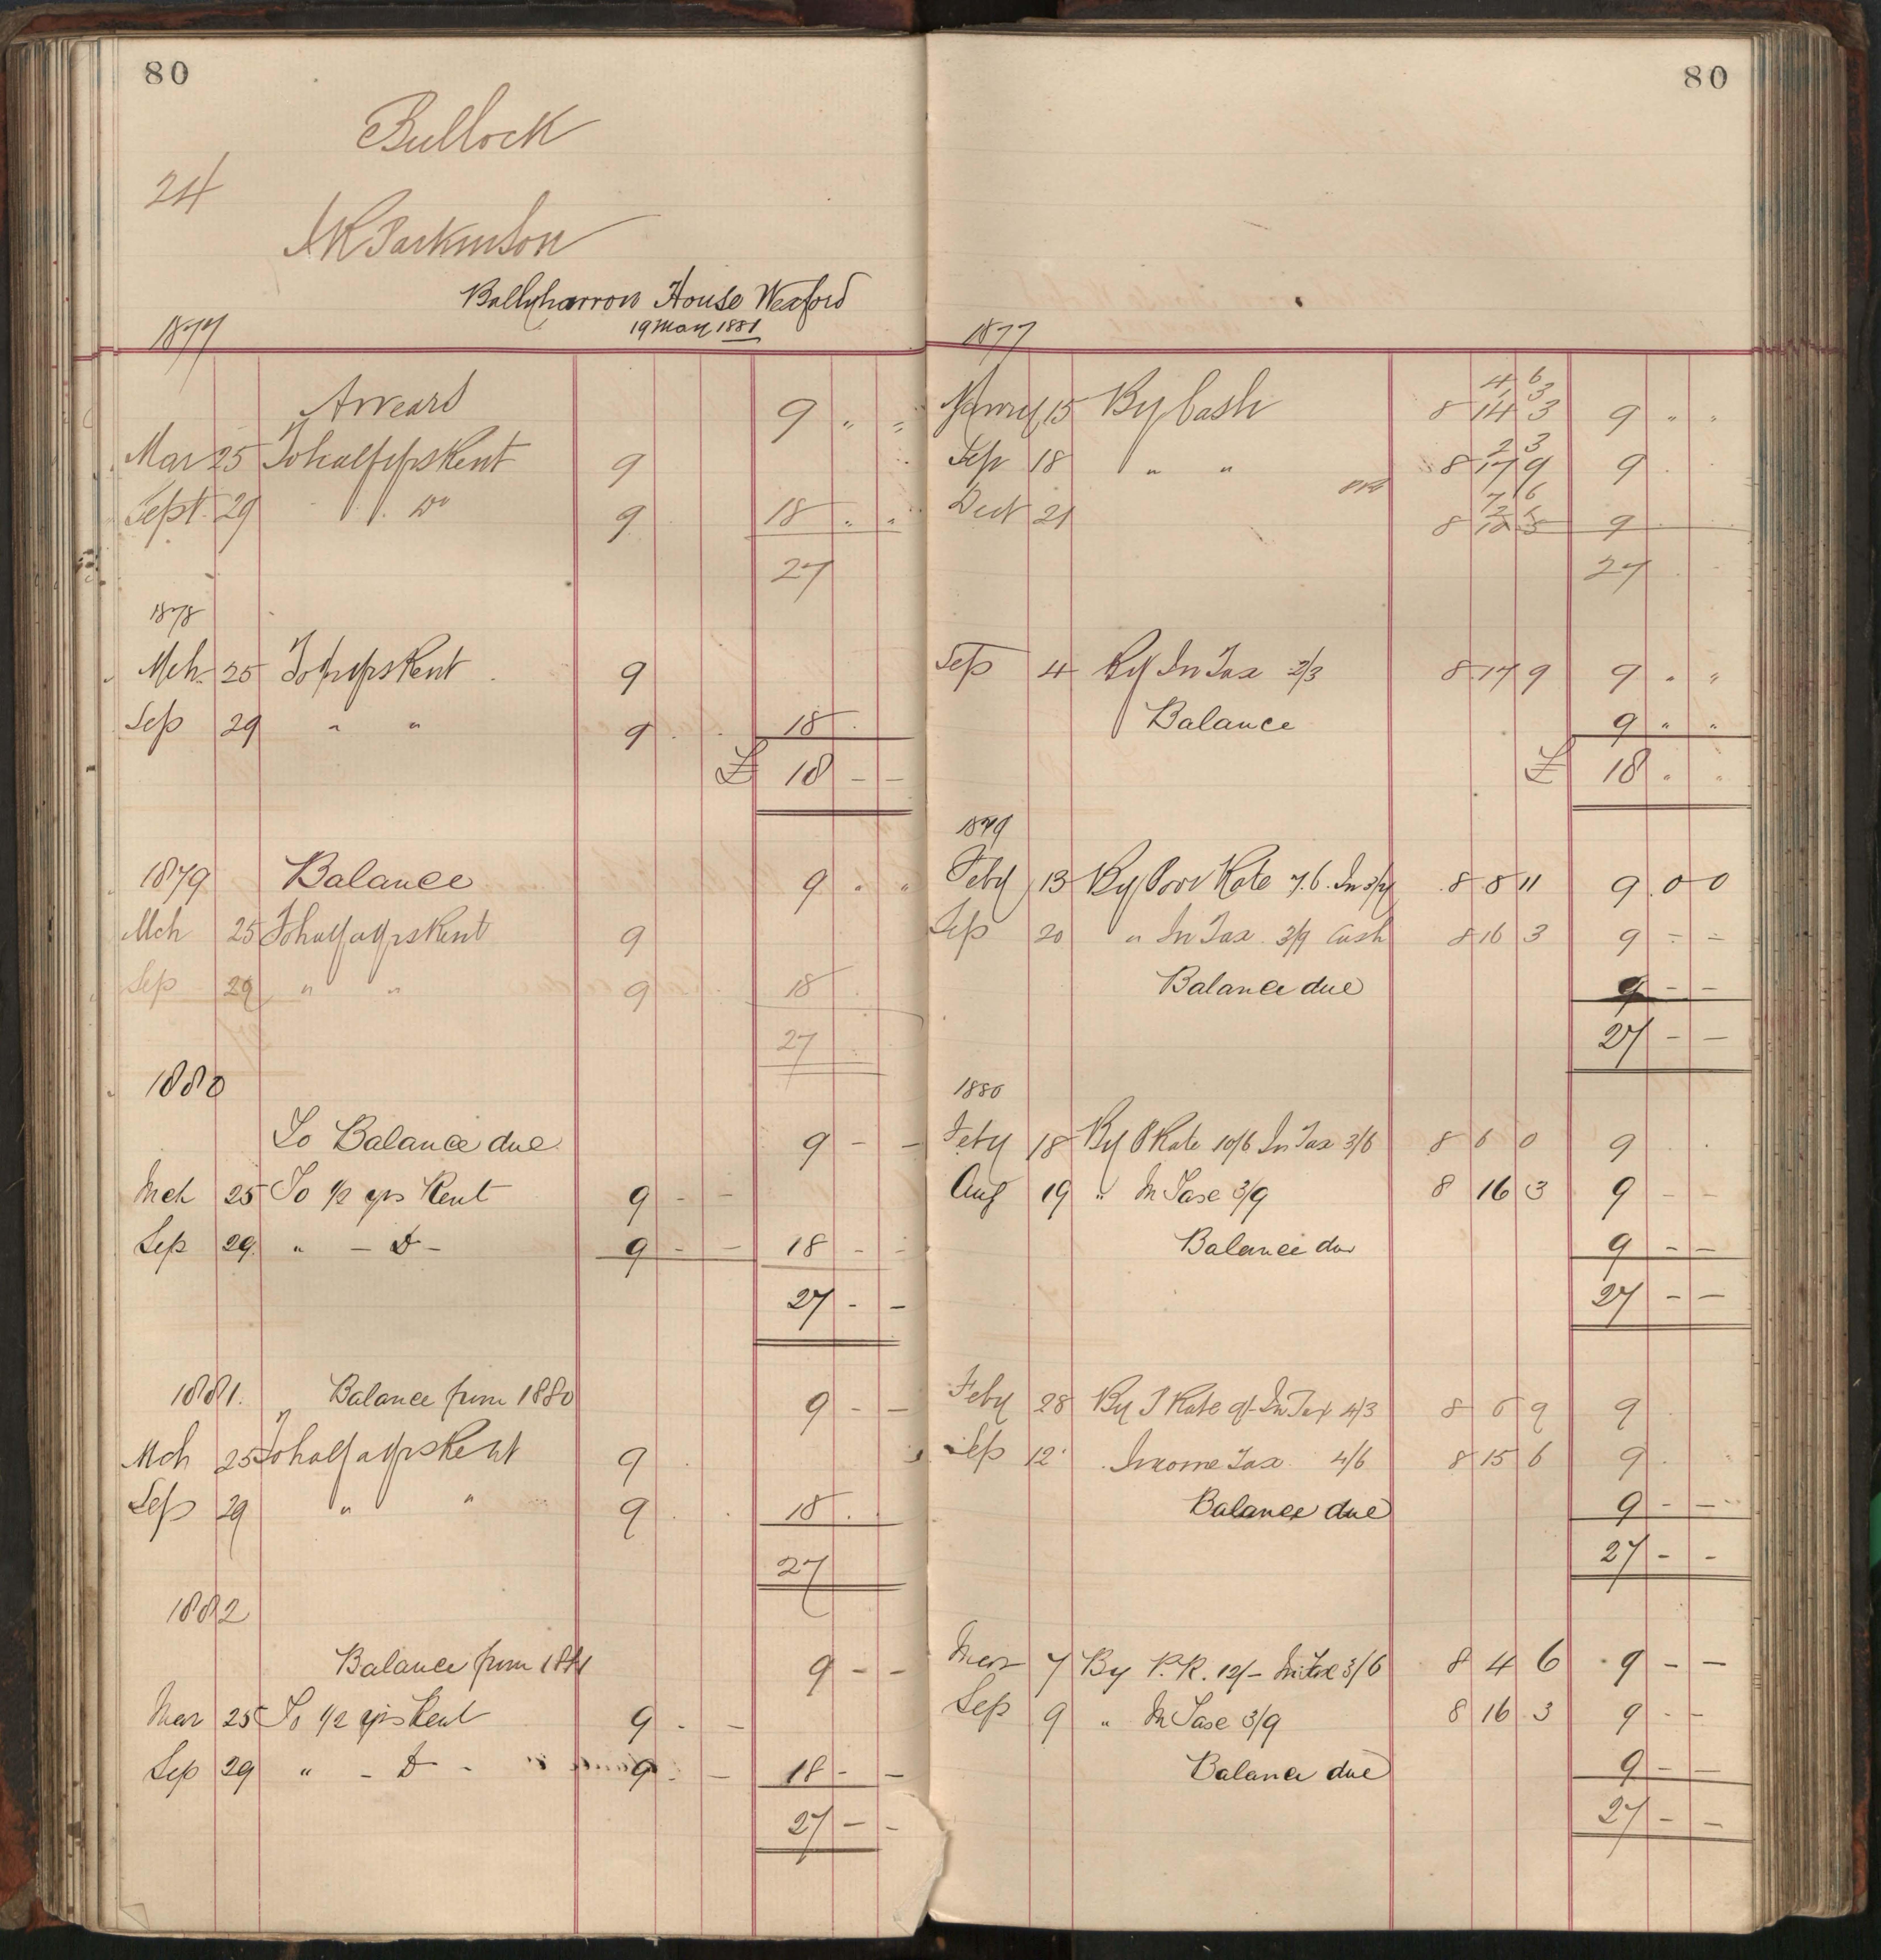 80
Bullock
24
Parkinson
House Wexford
19 May 1881
1877
Arrears 9 " "
Mar 25 To half yrs Rent 9
Sept 29 Do 9 18 " "
27
1878
Mch 25 To ½ yrs Rent 9
Sep 29 " " 9 18
£ 18 – –
1879 Balance 9 " "
Mch 25 To half a yrs Rent 9
Sep 29 " " 9 18
27
1880
To Balance due 9 – –
Mch 25 To 1/2 yrs Rent 9 – –
Sep 29 " – D – 9 – – 18 – –
27 – –
1881. Balance from 1880 9 – –
Mch 25 To half a yrs Rent 9
Sep 29 " " 9 18
27
1882
Balance from 1881 9 – –
Mar 25 To 1/2 yrs Rent 9 – –
Sep 29 " – D – 9 – – 18 – –
27 – –
80
1877
4 6
3
15 By Cash 8 14 3 9 " "
2 3
Sep 18 " " 8 17 9 9
7 6
21 8 9
27
Sep 4 By In Tax 2/3 8 17 9 9 " "
Balance 9 " "
£ 18 " "
1879
Feby 13 By Poor Rate 7.6. In 3/7 8 8 11 9 0 0
Sep 20 " In Tax 3/9 Cash 8 16 3 9 – –
Balance due 9 – –
27 – –
1880
Feby 18 By P Rate 10/6 In Tax 3/6 8 6 0 9
Aug 19 " In Taxe 3/9 8 16 3 9 – –
Balance due 9 – –
27 – –
Feby 28 By P Rate 9/- In Tax 4/3 8 6 9 9
Sep 12 Income Tax 4/6 8 15 6 9
Balance due 9 – –
27 – –
Mar 7 By P.R. 12/– In Taxe 3/6 8 4 6 9 – –
Sep 9 " In Taxe 3/9 8 16 3 9 – –
Balance due 9 – –
27 – –